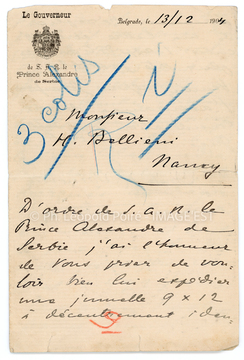 Le Gouverneur
de S. A. R. le
Prince Alexandre
de Serbie
Belgrade, le 13/12 1904
3 colis
Monsieur
H. Bellieni
Nancy
D'ordre de S. A. R. le
Prince Alexandre de
Serbie j'ai l'honneur
de vous prier de vou-
loir bien lui expédier
une jumelle 9 x 12
à décentrement iden-